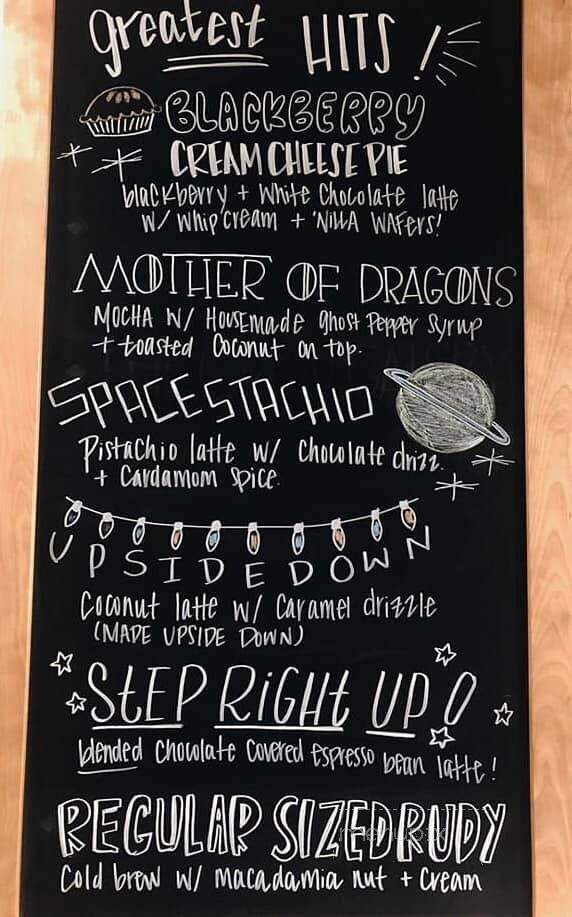 greatest HITS!
BLACKBERRY
CREAM CHEESE PIE
blackberry + White Chocolate latte
w/ whip cream + 'NILLA WAFERS!
MOTHER OF DRAGONS
MOCHA W/ HOUSEmade ghost Pepper Syrup
+ toasted Coconut on top.
SPACESTACHIO
Pistachio latte w/ Chocolate drizz.
+ Cardamom Spice.
UPSIDEDOWN
Coconut latte w/ Caramel drizzle
(MADE UPSIDE DOWN)
StEP RiGHt UP!
blended Chocolate Covered Espresso bean latte!
REGULAR SIZED RUDY
Cold brew w/ macadamia nut + Cream